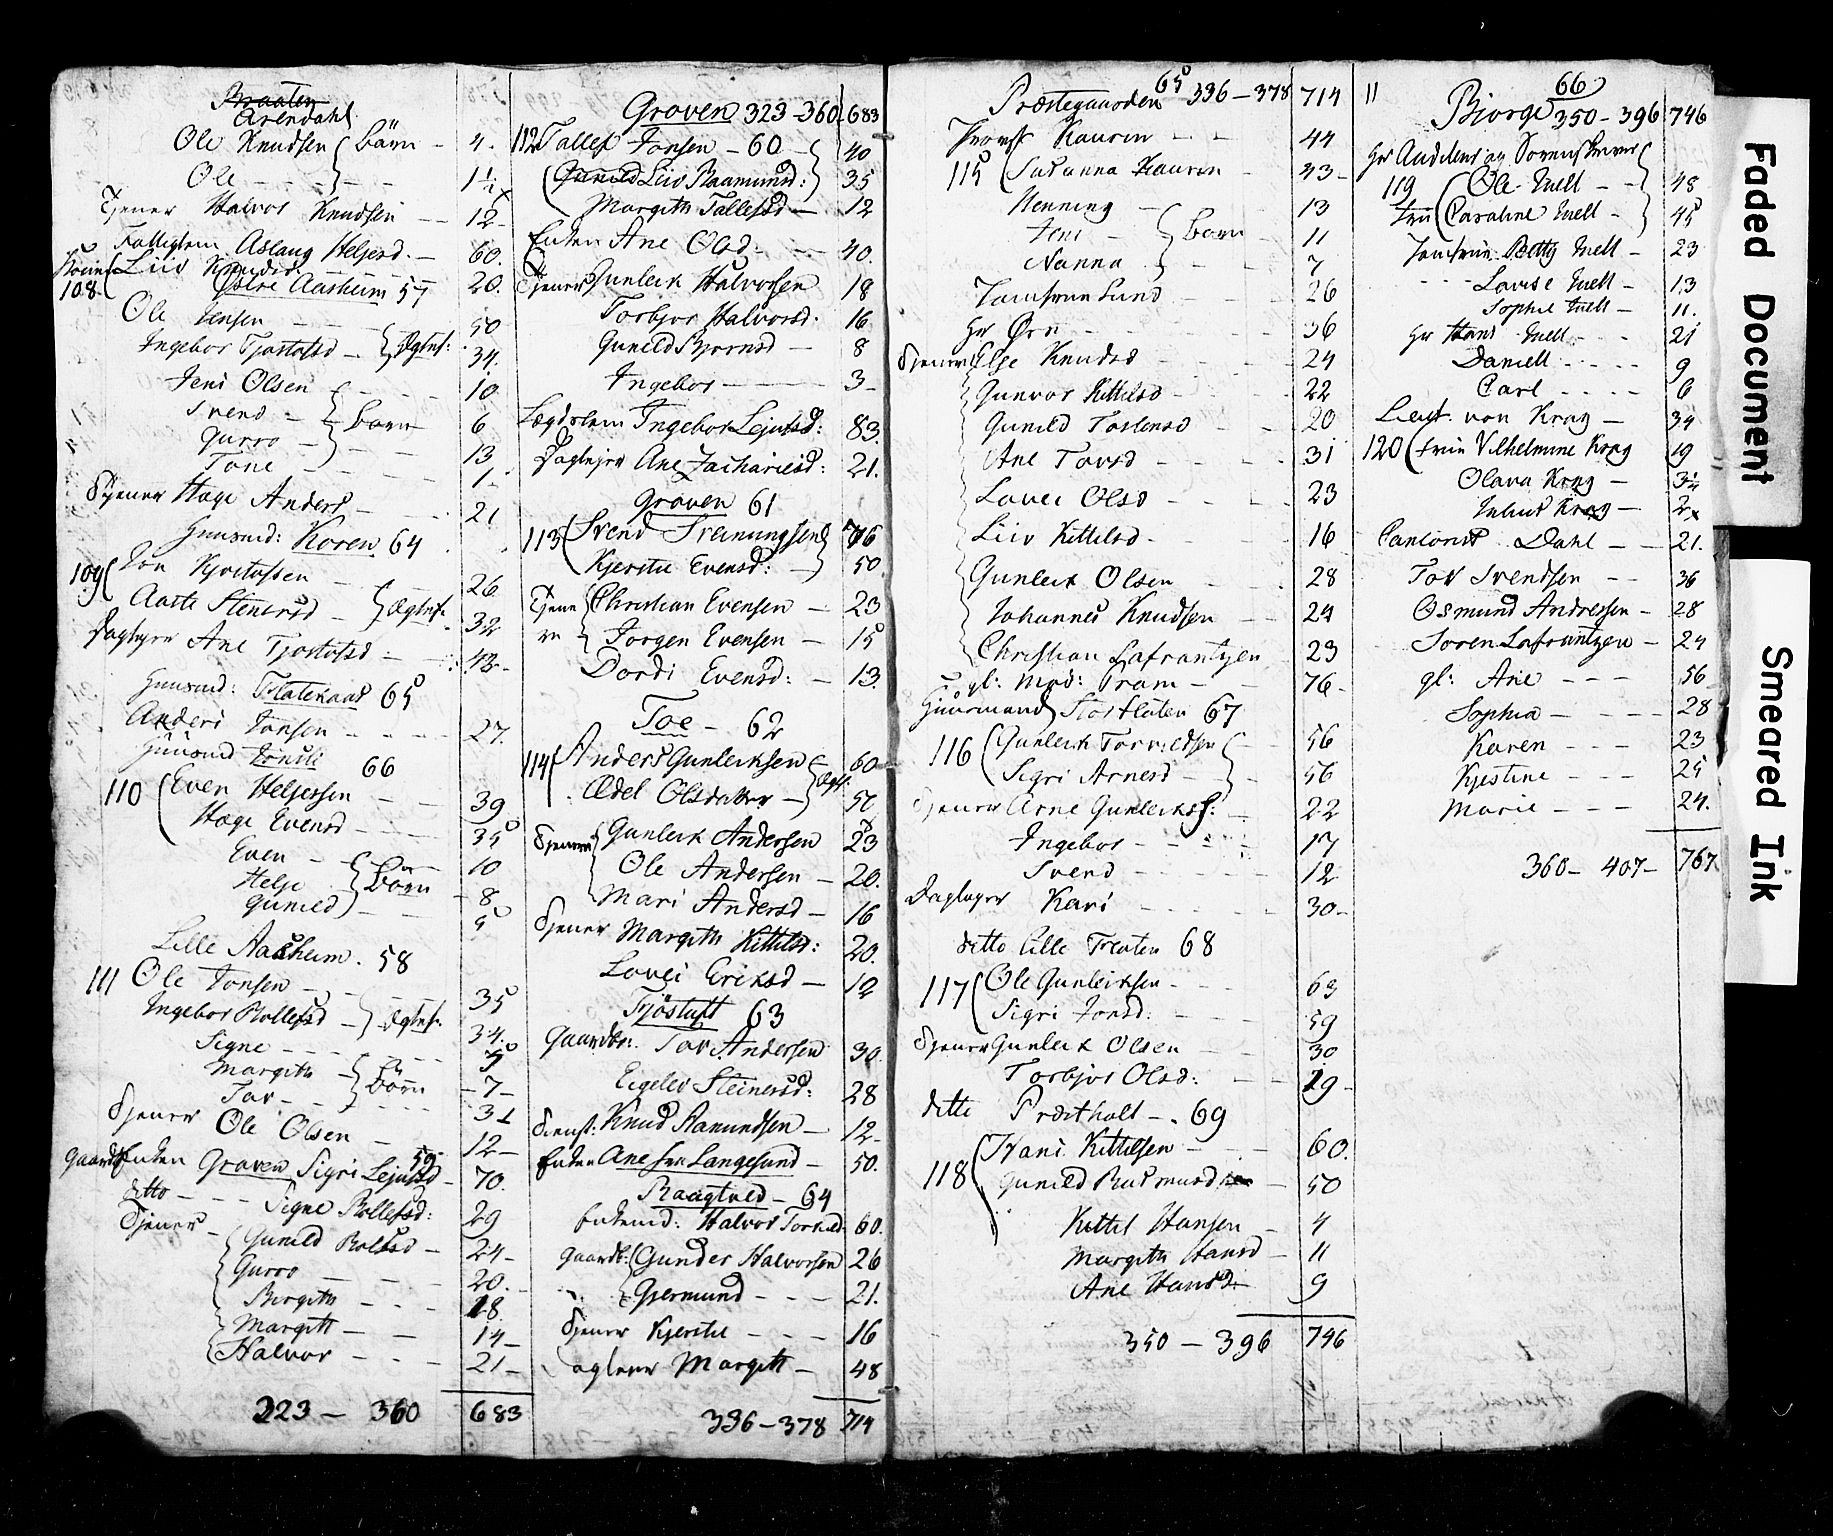 Braaten
Arendahl
Ole Knudsen } Börn - 4.
Ole - - - 1 1/2
Tjener Halvor Knudsen - 12-
Fattiglem Aslaug Heljesd. - 60.
Liiv Knudsd. 20.
108 Østre Aasheim 57
Ole Jensen - - 50
Ingebor Tjostofsd - } Ægtef: 34.
Jens Olsen - - 10
Svend - } börn 6
Gurro - - 13
Tone - - 1.
Tjener Hæge Anders - 21
Huusmd: Koren 64
109 Jon Kjostofsen - 26
Aaste Stenersd } Ægtef. 32
Daglejer Ane Tjostofsd - 43-
Huusmd: Flatekaas 65
Anders Jonsen - - 27.
Huusmd Jonsli 66
110 Even Heljesen - - 39
Hæge Evensd - - 35
Even - 10
Helje } Börn - 8
Gunild - 5
Lille Aasheim. 58
111 Ole Jonsen - - 35
Ingebor Rollefsd - } Ægtef. 34.
Signe - - - 9
Margith - } Börn - 7-
Tov - - - 3 1
Tjener Ole Olsen - 12-
Gaardb Enken Groven Sigri Lejufsd 59 - 70.
ditto - - - Signe Rollefsd: 29
Tjener - Gunild Rolfsd - 24-
Gurro - - 20.
Birgith - - - 18
Margith - - 14-
Halvor - - - 21-
323 - 360 683
Groven 323-360 683
112 Tallef Jonsen - 60 - 40
Gunild Liiv Raamunsd: 35
Margith Tallefsd - 12
Enken Ane Olsd: - 40.
Tjener Gunleik Halvorsen 18
Torbjor Halvorsd. 16
Gunild Bjornsd - 8
Ingebor - - - 3-
Lægdslem Ingebor Lejufsd: 83.
Daglejer Ane Zachariesd: 21.
Groven 61
113 Svend Sveinungsen 76
Kjerstie Evensd: - 50
Tjenere Christian Evensen - 23
Jorgen Evensen - 15
Dordi Evensd: - 13.
Toe - 62
114 Anders Gunleiksen 60
Ædel Olsdatter - } Ægtf: 50
Tjenere Gunleik Andersen 23
Ole Andersen - 20.
Mari Andersd - 16
Tjener Margith Kittilsd: 20.
Lovei Eriksd - 12
Tjöstuft 63
Gaardbr: Tov Andersen 30.
Eigelev Steinersd: 28
Tienst: Knud Aamundsen - 12-
Enken Ane fra Langesund - 50.
Raagtved - 64
Enkemd: Halvor Torkild: 60.
Gaardb: Gunder Halvorsen 26
Gjermund - - - 21.
Tjener Kjerstie - - - 16
Daglejer Margith - 48
336-378 714
Præstegaarden 65 336-378 714
Provst Kaurin - - 44
115 Susanna Kaurin - 43-
Henning - - 13
Jens - } Börn - 11
Nanna - 7
Jomfrue Lund - - - 26
Hr Ørn - - - 36
Tjenere Else Knudsd - - 24
Gunvor Kittilsd - - 22
Gunild Torstensd - 20
Ane Tovsd - - - 31
Lovei Olsd - - - 23
Liiv Kittilsd - - 16
Gunleik Olsen - - 28
Johannes Knudsen - - 24
Christian Lafrantzen 23
gl: Md: Pram - - 76-
Huusmand Storfloten 67
116 Gunleik Torkildsen - 56
Sigri Arnesd - - 56
Tjenere Arne Gunleiksf: - 22
Ingebor - - - 17
Svend - - - 12
Daglejer Kari - - - 30-
ditto Lille Floten 68
117 Ole Gunleiksen - - 63
Sigri Jonsd: - - 59
Tjenere Gunleik Olsen - - 30
Torbjor Olsd: - - 19-
ditto Præstholt - . 69
118 Hans Kittilsen - - 60.
Gunild Rasmusd - 50
Kittil Hansen - 4
Margith Hansd - 11
Ane Hansd: 9
350 - 396 746
66
11 Bjorge 350 - 396 746
Hr Auditeur og Sorenskriver
119 Ole Mell - - 48
Frue Caroline Mell - 45
Jomfrue Betty Mell - 23
- - - Lovise Mell - 13
Sophie Mell - 11.
Hr Hans Mell - - 21
Daniell - - - - 9
Carl - - - - 6
Lieut. von Krag - 34
120 Frue Vilhelmine Krag 19
Olava Krag - 3 1/4
Julius Krag - 2
Cancelist Dahl - - 21.
Tov Svendsen - - 36
Osmund Andresen - 28
Soren Lafrantzen - 24
gl: Ane - - - 56
Sophia - - - 28
Karen - - - 23
Kjestine - - - 25
Marie - - - 24.
360 - 407 - 767
Faded Document
Smeared Ink